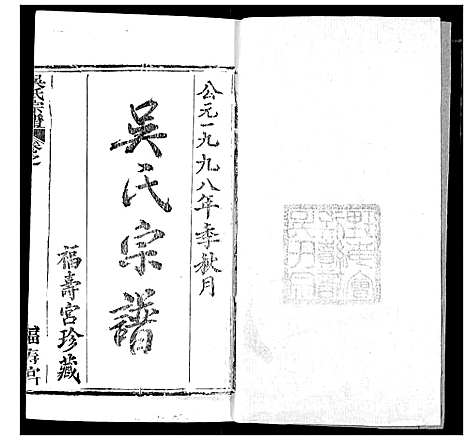 公元一九九八年季秋月
吴氏宗譜
福壽宮珍藏
吴氏宗譜
卷之
福壽宮